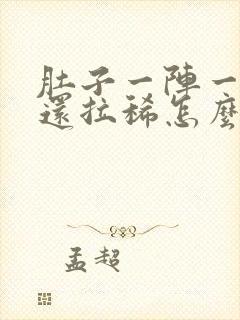 肚子一陣一
還拉稀怎麼
孟超